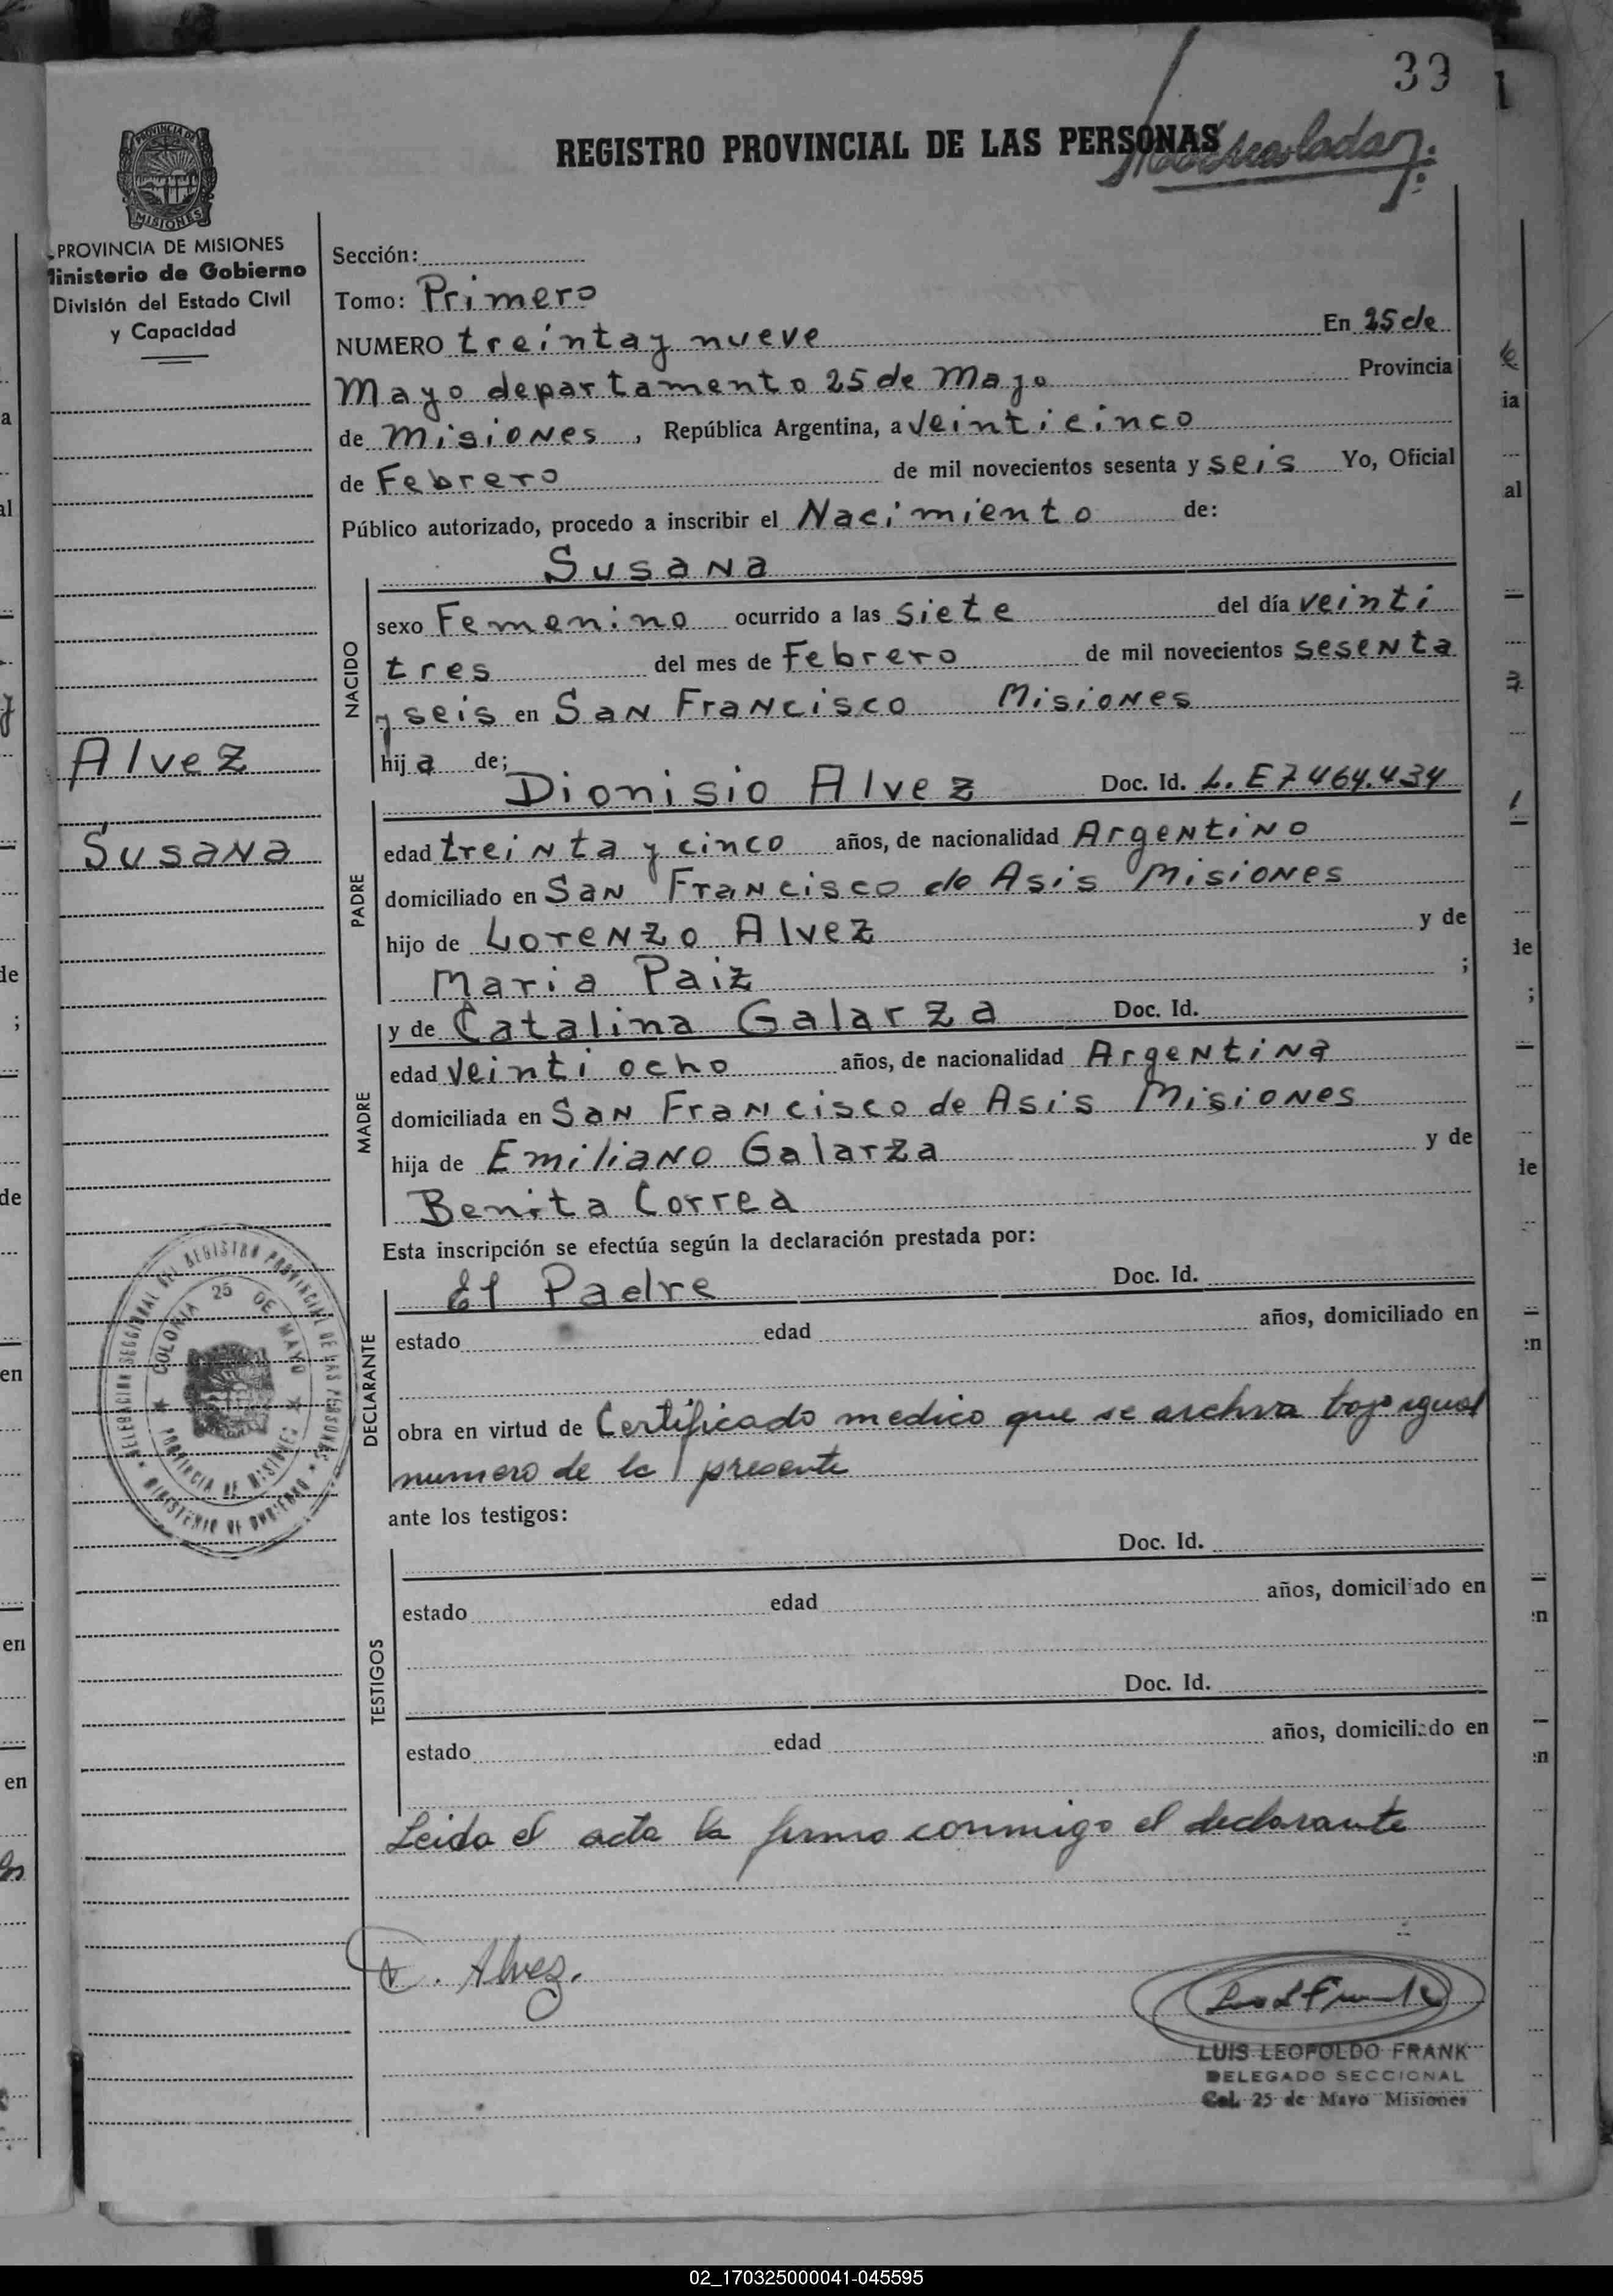 39
REGISTRO PROVINCIAL DE LAS PERSONAS
PROVINCIA DE MISIONES
MISIONES
PROVINCIA DE MISIONES
Ministerio de Gobierno
División del Estado Civil
y Capacidad
Alvez
Susana
Sección:
Tomo: Primero
NUMERO treinta y nueve En 25 de
Mayo departamento 25 de Mayo Provincia
de Misiones, República Argentina, a veinticinco
de Febrero de mil novecientos sesenta y seis Yo, Oficial
Público autorizado, procedo a inscribir el Nacimiento de:
Susana
NACIDO
sexo Femenino ocurrido a las siete del día veinti
tres del mes de Febrero de mil novecientos sesenta
y seis en San Francisco Misiones
hija de;
Dionisio Alvez Doc. Id. L. E 7464.434
PADRE
edad treinta y cinco años, de nacionalidad Argentino
domiciliado en San Francisco de Asis Misiones
hijo de Lorenzo Alvez y de
Maria Paiz ;
y de Catalina Galarza Doc. Id.
MADRE
edad veinti ocho años, de nacionalidad Argentina
domiciliada en San Francisco de Asis Misiones
hija de Emiliano Galarza y de
Benita Correa
Esta inscripción se efectúa según la declaración prestada por:
El Padre Doc. Id.
DECLARANTE
estado edad años, domiciliado en
obra en virtud de Certificado medico que se archiva bajo igual
numero de la presente
ante los testigos:
Doc. Id.
TESTIGOS
estado edad años, domiciliado en
Doc. Id.
estado edad años, domiciliado en
Leida el acta la firma conmigo el declarante
DELEGACION SECCIONAL DEL REGISTRO PROVINCIAL DE LAS PERSONAS
MINISTERIO DE GOBIERNO
COLONIA 25 DE MAYO
PROVINCIA DE MISIONES
D. Alvez.
LUIS LEOPOLDO FRANK
DELEGADO SECCIONAL
Col. 25 de Mayo Misiones
02_170325000041-045595